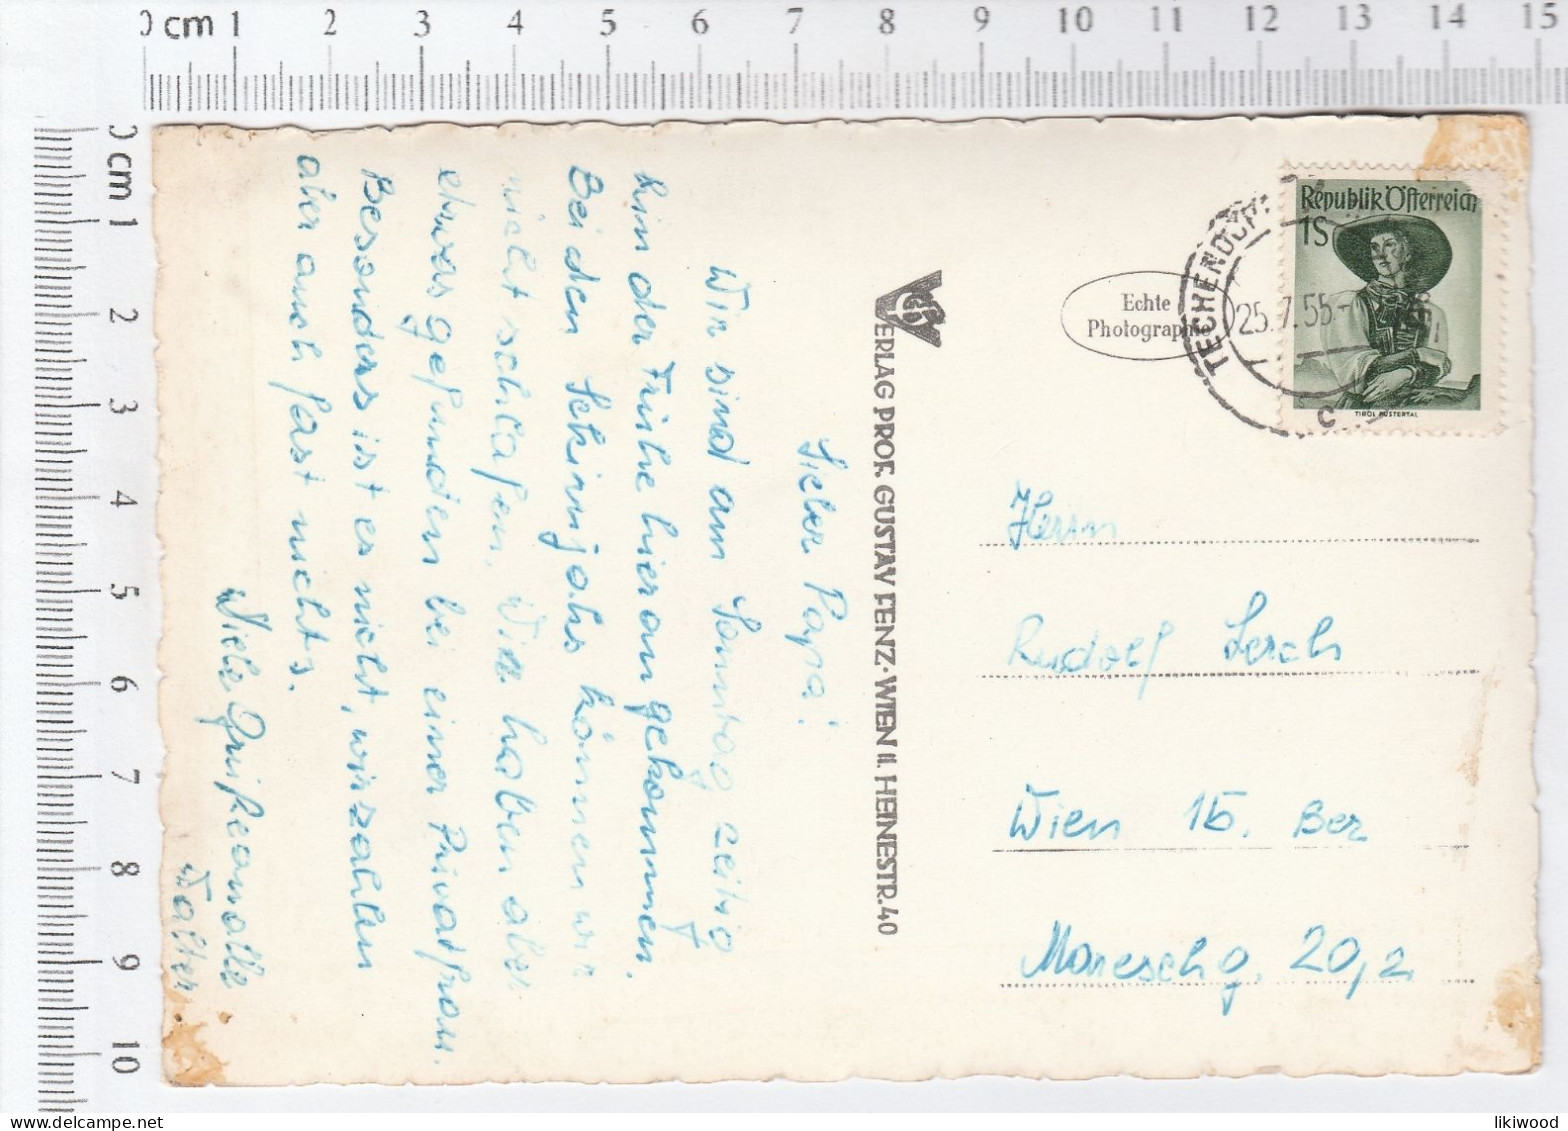 0 cm 1 2 3 4 5 6 7 8 9 10 11 12 13 14 15
0 cm 1 2 3 4 5 6 7 8 9 10
Lieber Papa!
Wir sind am Sonntag zeitig
in der Frühe hier angekommen.
Bei den können wir
nicht schlafen. Wir haben aber
etwas gefunden bei einer Privatfrau.
Besonders ist es nicht, wir zahlen
aber auch fast nichts.
Viele Grüße an alle
Walter
VERLAG PROF. GUSTAV FENZ·WIEN II. HEINESTR. 40
Echte
Photographie
Republik Österreich
1S
TIROL PUSTERTAL
TECHENDORF
25.7.55
c
Herrn
Rudolf Lerch
Wien 15. Bez
Mareschg. 20,2
likiwood